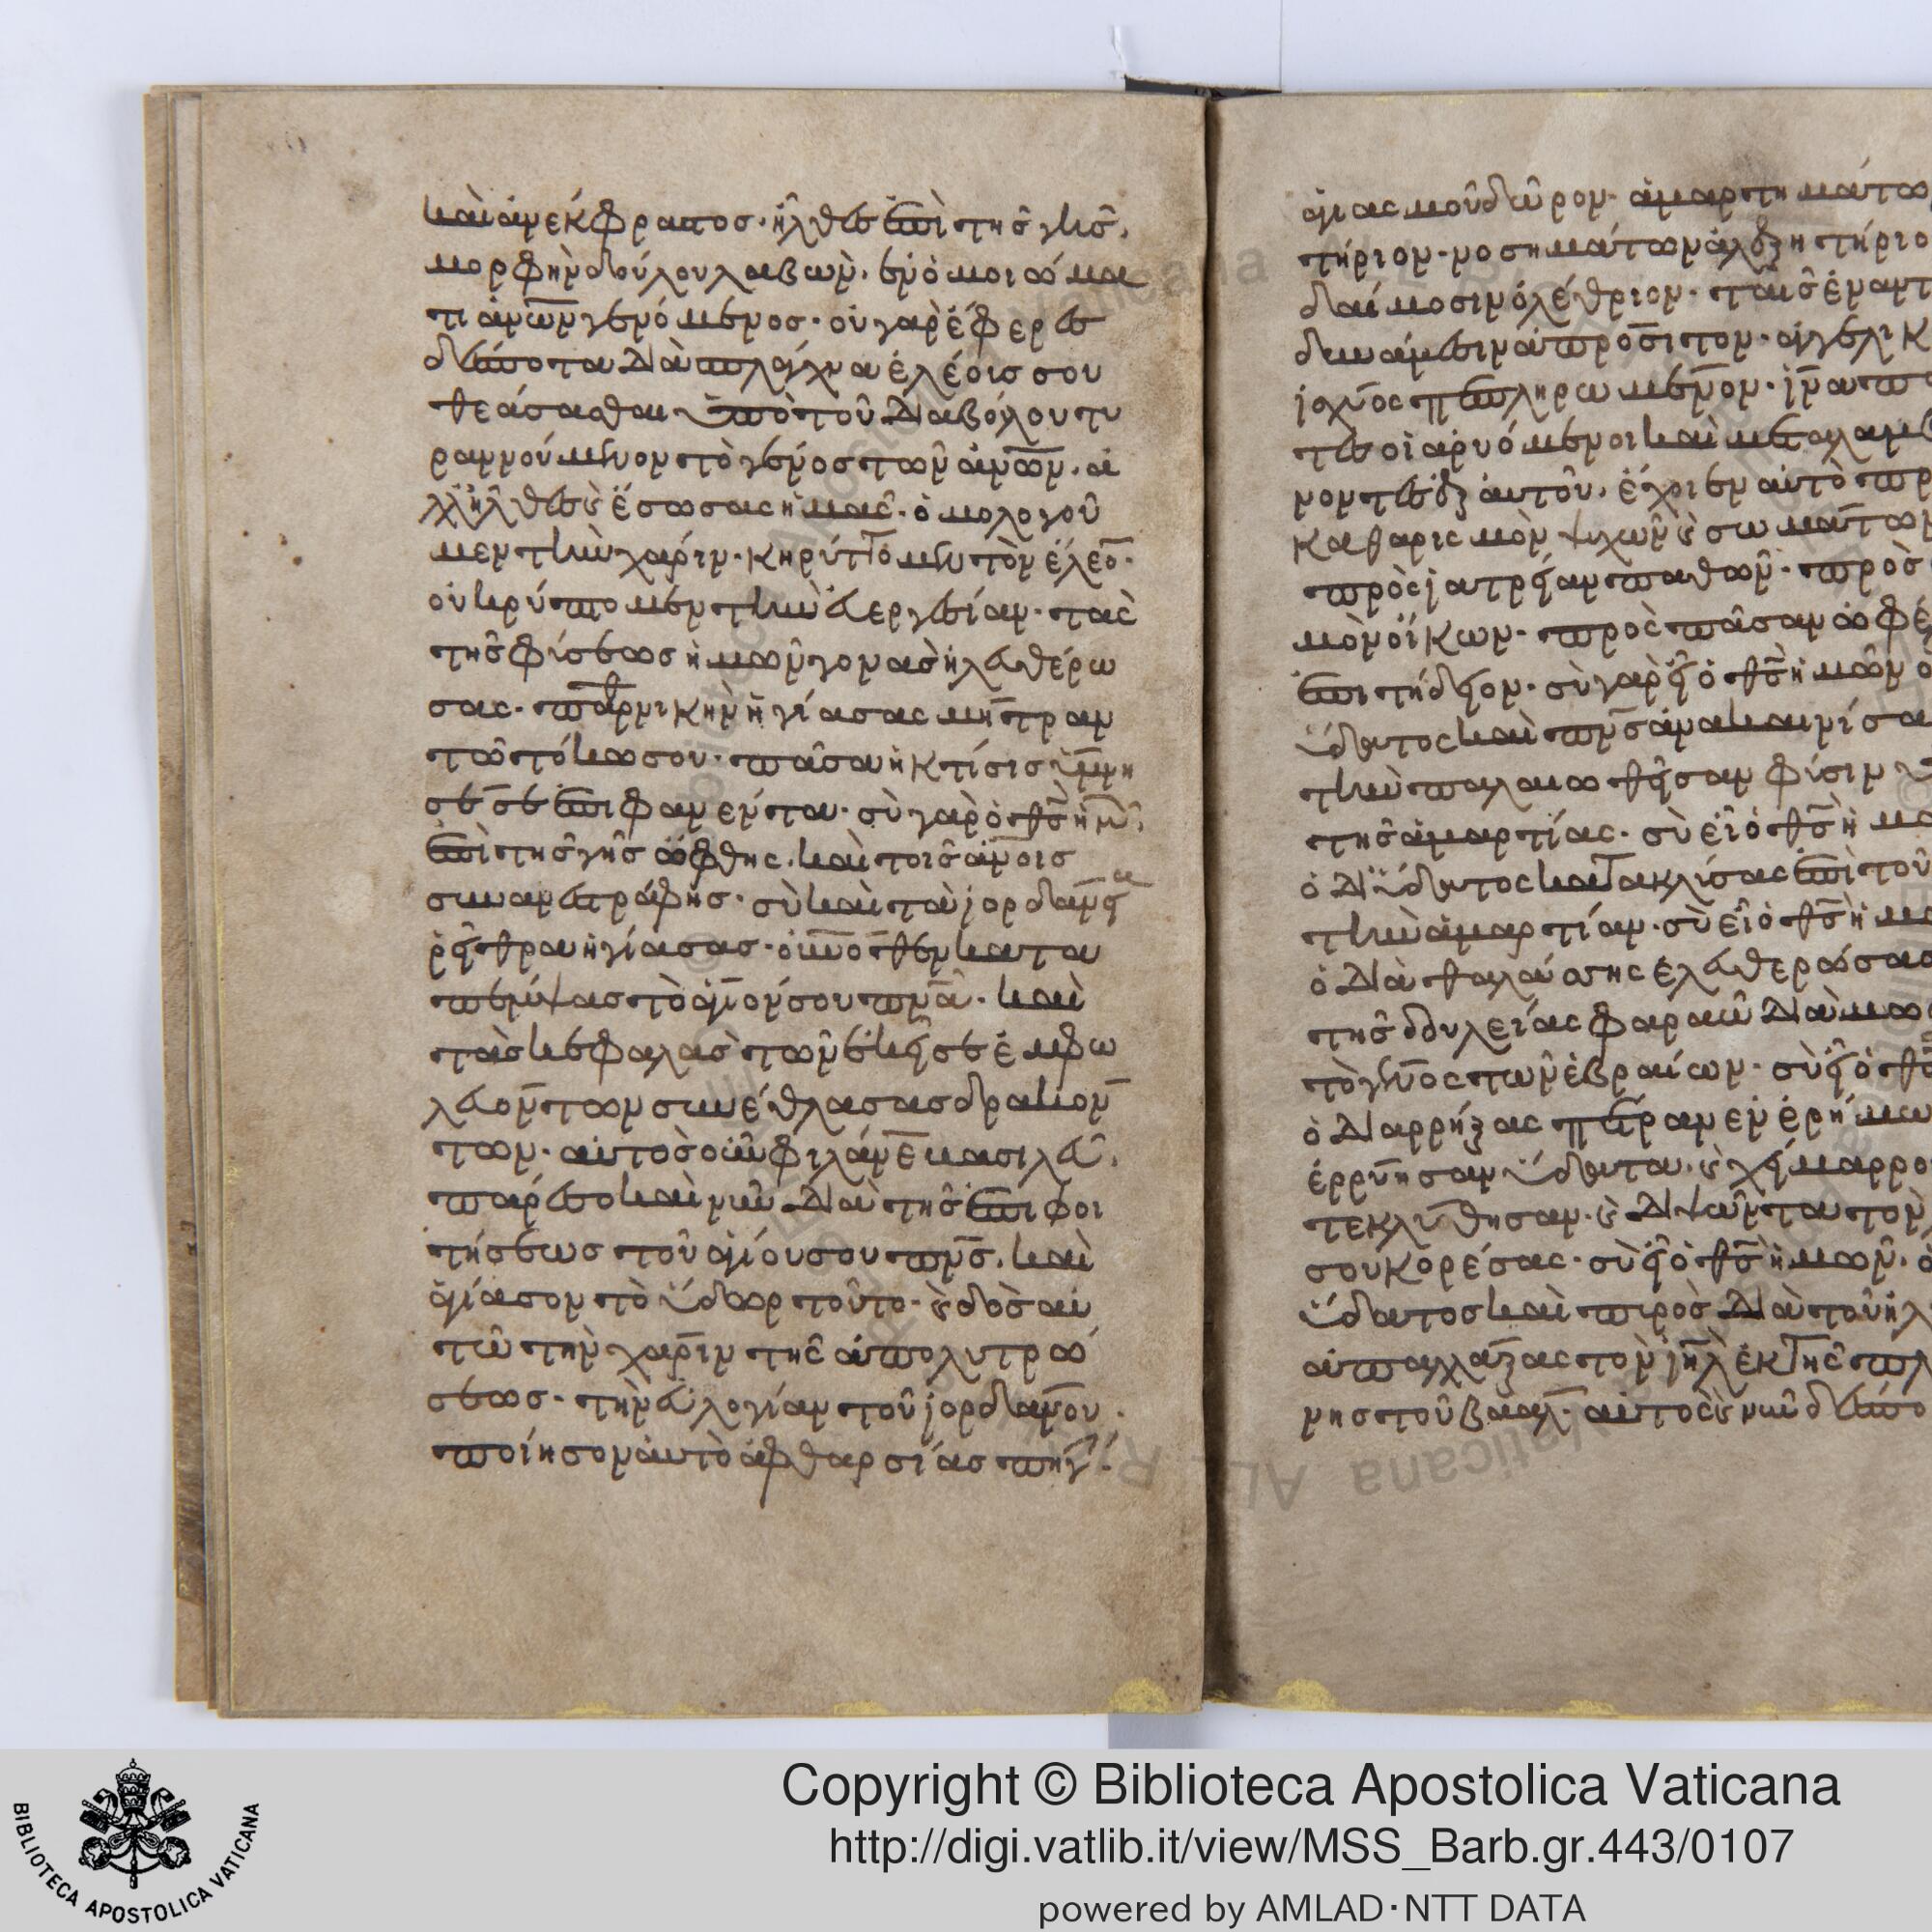 καὶ ἀνεκφραστος· ἦλθες ἐπὶ τῆς γῆς,
μορφὴν δούλου λαβὼν, ἐν ὁμοιώμα
τι ἀνων γενόμενος· οὐ γὰρ ἔφερες
δέσποτα διὰ σπλάγχνα ἐλέοις σου
θεάσασθαι ὑπὸ τοῦ διαβόλου τυ
ραννούμενον τὸ γένος τῶν ἀνων, ἀ
λλ' ἦλθες καὶ ἔσωσας ἡμας· ὁμολογοῦ
μεν τὴν χάριν· κηρύττομεν τὸν ἔλεον·
οὐ κρύπτομεν τὴν εὐεργεσίαν· τὰς
τῆς φύσεως ἡμῶν γονὰς ἠλευθέρω
σας· παρθενικὴν ἡγίασας μήτραν
τῶ τόκω σου· πᾶσα ἡ κτίσις ὕμνη
σέ σε ἐπιφανέντα· σὺ γὰρ ὁ θς ἡμῶν,
ἐπὶ τῆς γῆς ὤφθης, καὶ τοῖς ἀνοις
συνανεστράφης· σὺ καὶ τὰ ἰορδάνεια
ῥεῖθρα ἡγίασας· οὐνοθεν κατα
πέμψας τὸ ἅγιόν σου πνα· καὶ
τὰς κεφαλὰς τῶν ἐκεῖσε ἐμφω
λευόντων συνέθλασας δρακόν
των· αὐτὸς οὖν φιλάνε βασιλεῦ,
πάρεσο καὶ νῦν διὰ τῆς ἐπιφοι
τήσεως τοῦ ἁγίου σου πνς, καὶ
ἁγίασον τὸ ὕδωρ τοῦτο· καὶ δὸς αὐ
τῶ τὴν χάριν τῆς ἀπολυτρώ
σεως· τὴν εὐλογίαν τοῦ ἰορδάνου·
ποίησον αὐτὸ ἀφθαρσίας πηγὴν·
ἁγιασμοῦ δῶρον· ἁμαρτημάτω
τήριον· νοσημάτων ἀλεξητήριο
δαίμοσιν ὀλέθριον· ταῖς ἐναντ
δυνάμεσιν ἀπρόσιτον· ἀγγελικ
ἰσχύος πεπληρωμένον· ἵνα π
τες οἱ ἀρυόμενοι καὶ μεταλαμβ
νοντες ἐξ αὐτοῦ, ἔχοιεν αὐτὸ πρ
καθαρισμὸν ψυχῶν καὶ σωμάτων
πρὸς ἰατρείαν παθῶν· πρὸς
μὸν οἴκων· πρὸς πᾶσαν ὠφέ
ἐπιτήδειον· σὺ γὰρ εἶ ὁ θς ἡμῶν ὁ
ὕδατος καὶ πνς ἀνακαινίσα
τὴν παλαιωθεῖσαν φύσιν ὑ
τῆς ἁμαρτίας· σὺ εἶ ὁ θς ἡμ
ὁ δι' ὕδατος κατακλύσας ἐπὶ τοῦ
τὴν ἁμαρτίαν· σὺ εἶ ὁ θς ἡμ
ὁ διὰ θαλάσσης ἐλευθερώσας
τῆς δουλείας φαραὼ διὰ μω
τὸ γένος τῶν ἑβραίων· σὺ εἶ ὁ θς
ὁ διαρρήξας πέτραν ἐν ἐρήμω
ἐρρύησαν ὕδατα, καὶ χείμαρρο
τεκλύσθησαν· καὶ διψῶντα τὸν
σου κορέσας· σὺ εἶ ὁ θς ἡμῶν, ὁ
ὕδατος καὶ πυρὸς διὰ τοῦ ἡλ
ἀπαλλάξας τὸν ἰηλ ἐκ τῆς πλ
νης τοῦ βάαλ· αὐτὸς καὶ νῦν δέσπο
Copyright © Biblioteca Apostolica Vaticana
http://digi.vatlib.it/view/MSS_Barb.gr.443/0107
powered by AMLAD·NTT DATA
BIBLIOTECA APOSTOLICA VATICANA